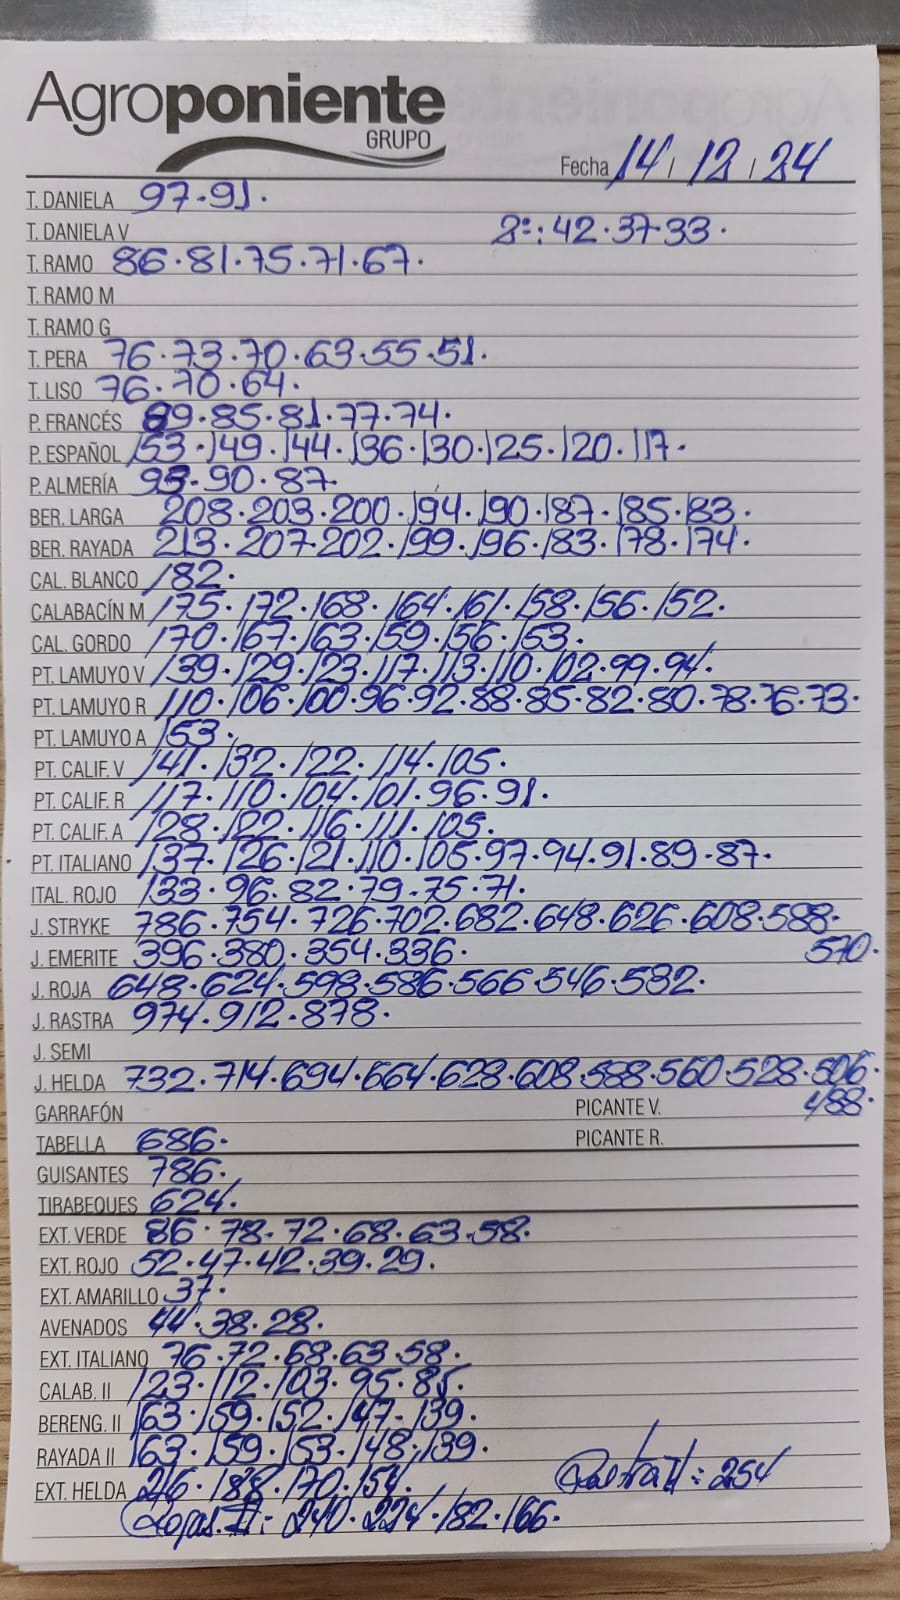 Agroponiente
GRUPO
Fecha 14 / 12 / 24
T. DANIELA 97.91.
T. DANIELA V 2ª: 42.37.33.
T. RAMO 86.81.75.71.67.
T. RAMO M
T. RAMO G
T. PERA 76.73.70.63.55.51.
T. LISO 76.70.64.
P. FRANCÉS 89.85.81.77.74.
P. ESPAÑOL 153.149.144.136.130.125.120.117.
P. ALMERÍA 93.90.87.
BER. LARGA 208.203.200.194.190.187.185.183.
BER. RAYADA 213.207.202.199.196.183.178.174.
CAL. BLANCO 182.
CALABACÍN M 175.172.168.164.161.158.156.152.
CAL. GORDO 170.167.163.159.156.153.
PT. LAMUYO V 139.129.123.117.113.110.102.99.94.
PT. LAMUYO R 110.106.100.96.92.88.85.82.80.78.76.73.
PT. LAMUYO A 153.
PT. CALIF. V 141.132.122.114.105.
PT. CALIF. R 117.110.104.101.96.91.
PT. CALIF. A 128.122.116.111.105.
PT. ITALIANO 137.126.121.110.105.97.94.91.89.87.
ITAL. ROJO 133.96.82.79.75.71.
J. STRYKE 786.754.726.702.682.648.626.608.588.
J. EMERITE 396.380.354.336. 570.
J. ROJA 648.624.598.586.566.546.532.
J. RASTRA 974.912.878.
J. SEMI
J. HELDA 732.714.694.664.628.608.588.560.528.506.
GARRAFÓN PICANTE V. 488.
TABELLA 686. PICANTE R.
GUISANTES 786.
TIRABEQUES 624.
EXT. VERDE 86.78.72.68.63.58.
EXT. ROJO 52.47.42.39.29.
EXT. AMARILLO 37.
AVENADOS 44.38.28.
EXT. ITALIANO 76.72.68.63.58.
CALAB. II 123.112.103.95.85.
BERENG. II 163.159.152.147.139.
RAYADA II 163.159.153.148.139.
EXT. HELDA 216.188.170.154. : 254
II: 240.224.182.166.